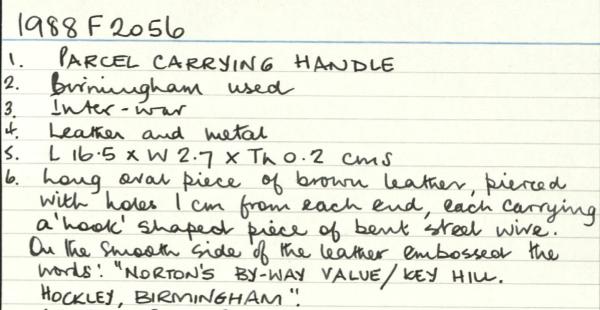 1988 F 2056
1. PARCEL CARRYING HANDLE
2. Birmingham used
3. Inter-war
4. Leather and metal
5. L 16.5 x W 2.7 x Th 0.2 cms
6. Long oval piece of brown leather, pierced
with holes 1 cm from each end, each carrying
a 'hook' shaped piece of bent steel wire.
On the smooth side of the leather embossed the
words: "NORTON'S BY-WAY VALUE/KEY HILL.
HOCKLEY, BIRMINGHAM".